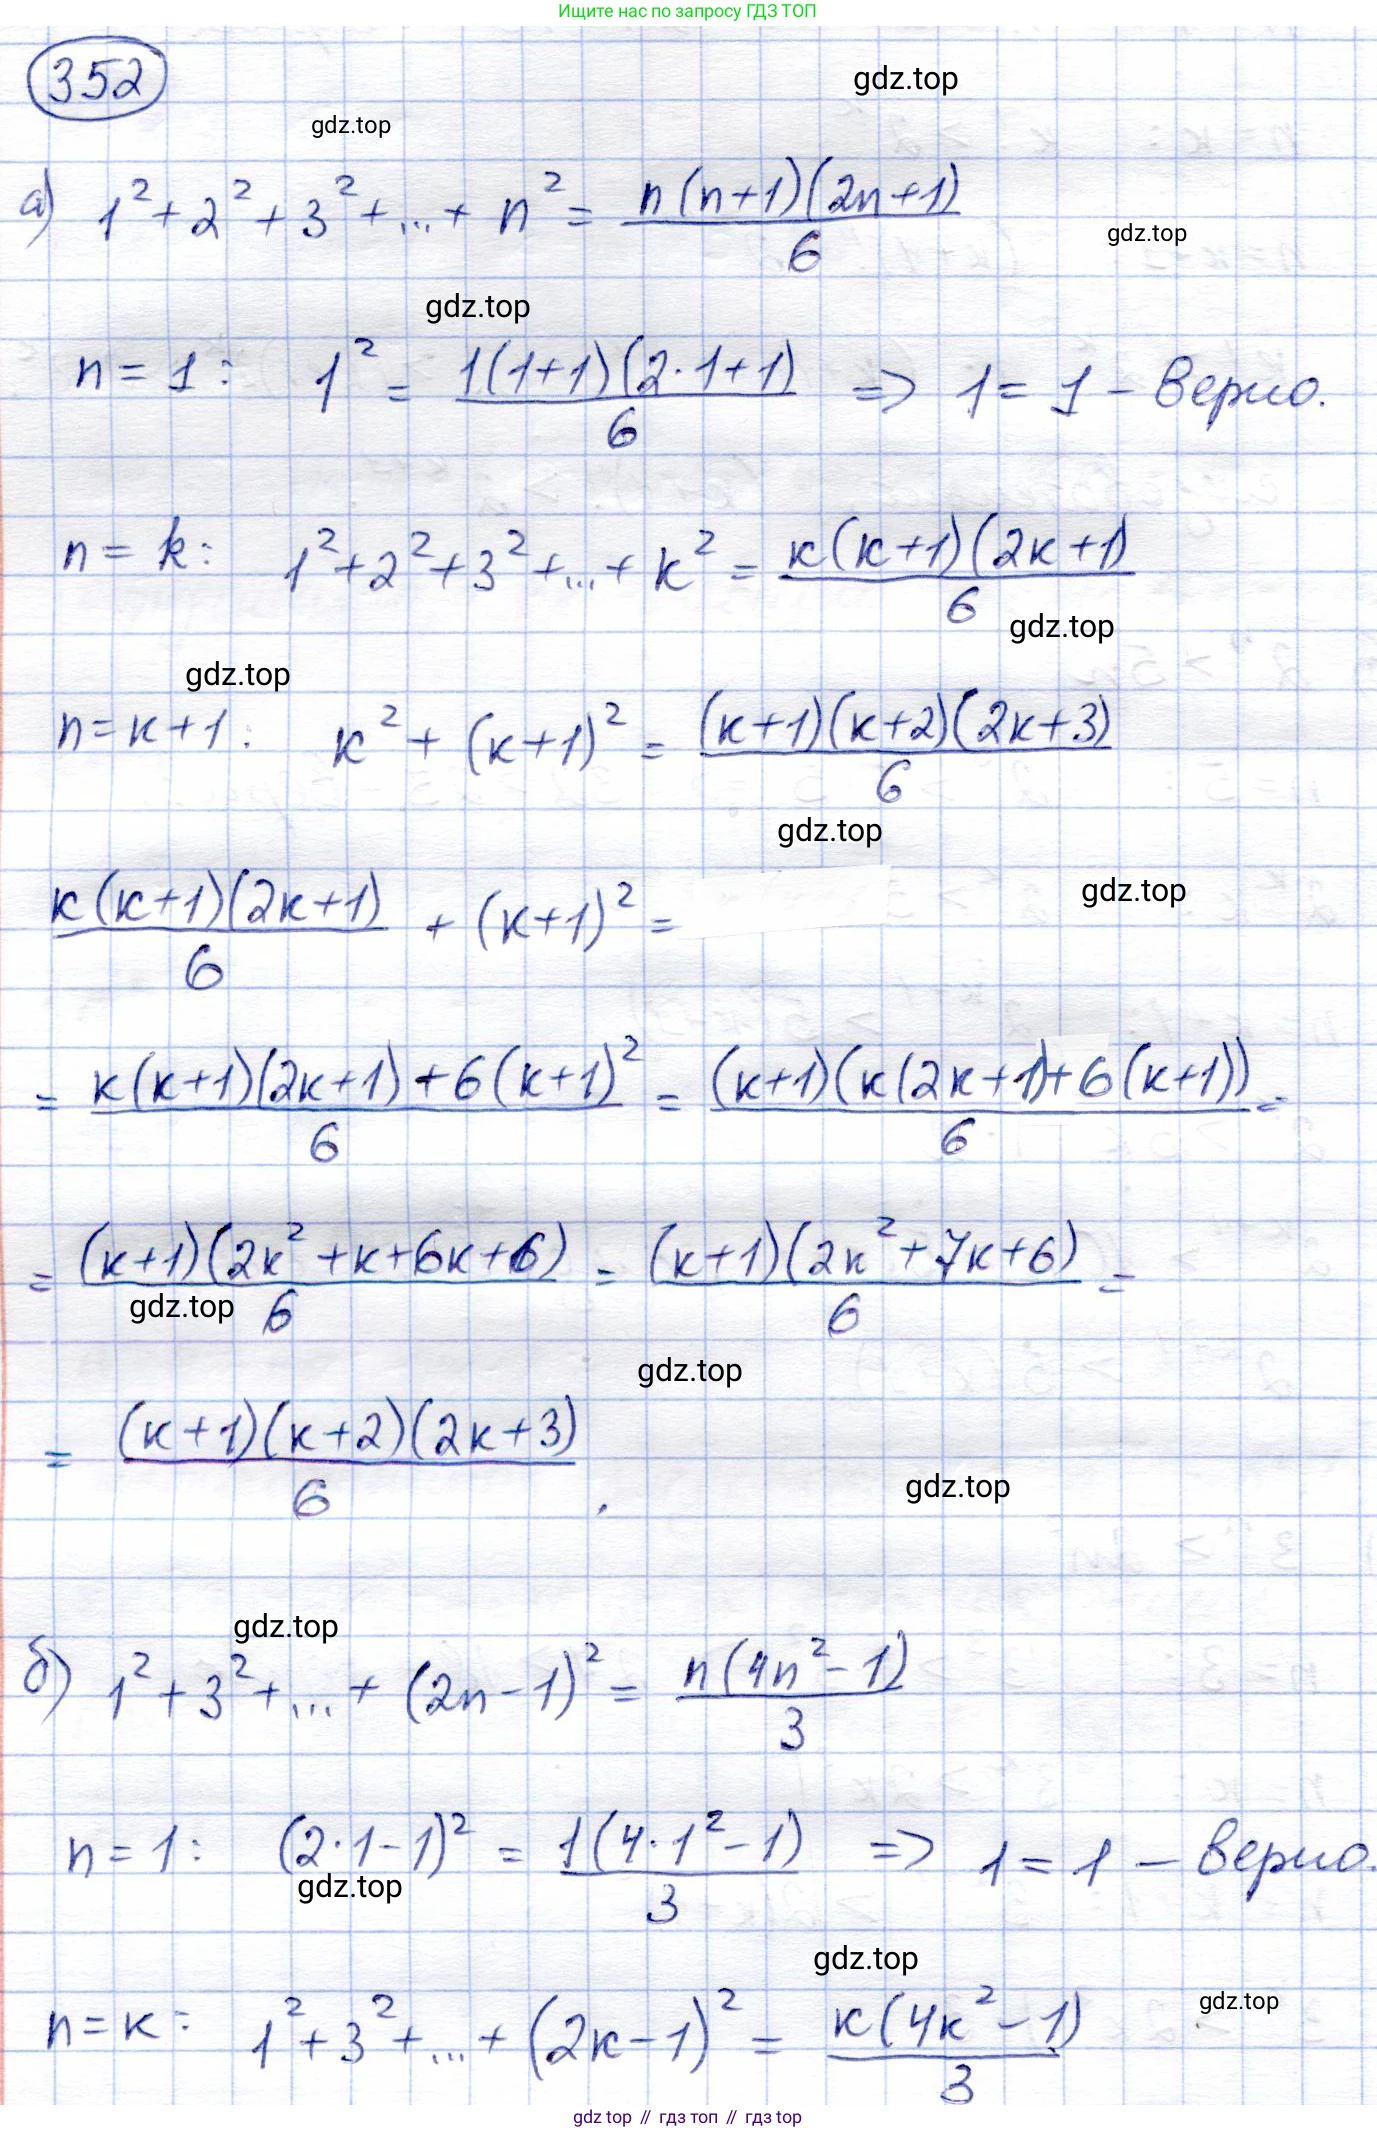 Ищите нас по запросу ГДЗ ТОП
352
gdz.top
gdz.top
а) 1² + 2² + 3² + ... + n² = n(n+1)(2n+1)/6
gdz.top
gdz.top
n = 1: 1² = 1(1+1)(2·1+1)/6 => 1 = 1 – верно.
n = k: 1² + 2² + 3² + ... + k² = k(k+1)(2k+1)/6
gdz.top
gdz.top
n = k+1: k² + (k+1)² = (k+1)(k+2)(2k+3)/6
gdz.top
gdz.top
k(k+1)(2k+1)/6 + (k+1)² =
= k(k+1)(2k+1) + 6(k+1)²/6 = (k+1)(k(2k+1)+6(k+1))/6 =
= (k+1)(2k²+k+6k+6)/6 = (k+1)(2k²+7k+6)/6 =
gdz.top
gdz.top
= (k+1)(k+2)(2k+3)/6.
gdz.top
gdz.top
б) 1² + 3² + ... + (2n-1)² = n(4n²-1)/3
n = 1: (2·1-1)² = 1(4·1²-1)/3 => 1 = 1 – верно.
gdz.top
gdz.top
gdz.top
n = k: 1² + 3² + ... + (2k-1)² = k(4k²-1)/3
gdz top // гдз топ // gdz top